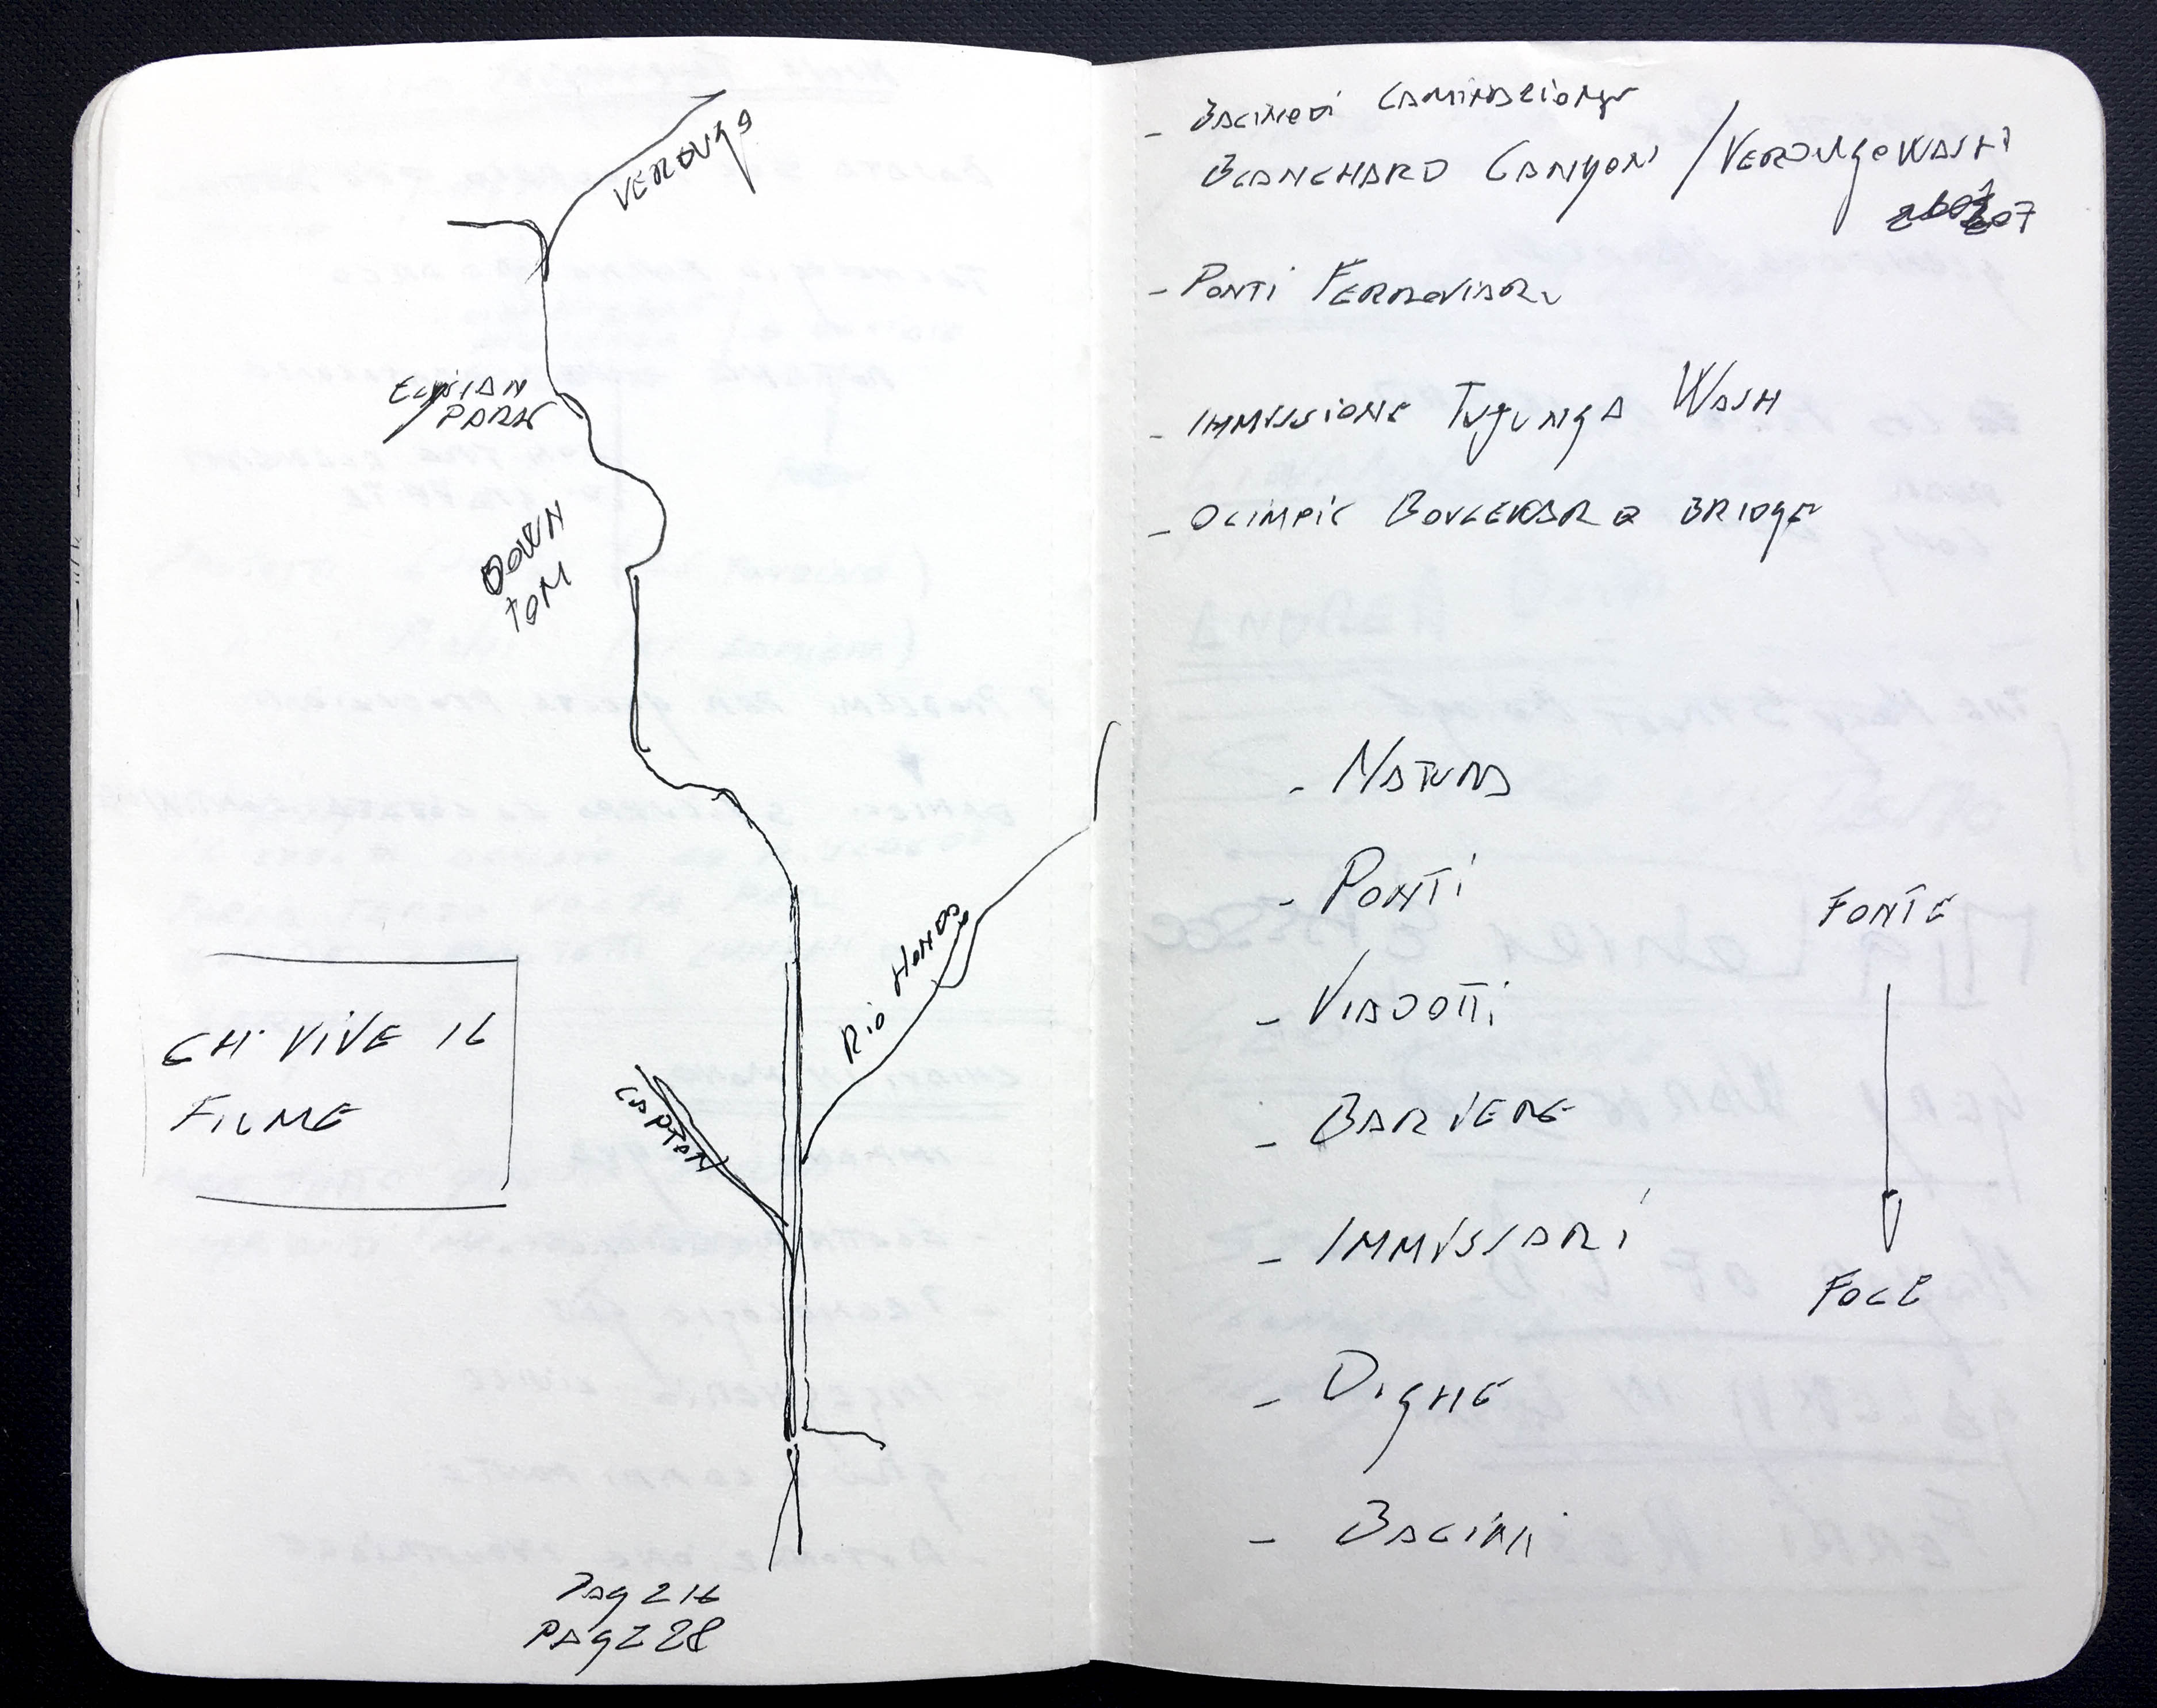 VERDUGO
ELYSIAN
PARK
DOWN
TOM
RIO HONDO
COMPTON
CHI VIVE IL
FIUME
PAG 216
PAG 228
- BACINO DI LAMINAZIONE
BLANCHARD CANYON / VERDUGO WASH
207
- PONTI FERROVIARI
- IMMISSIONE TUJUNGA WASH
- OLIMPIC BOULEVARD BRIDGE
- NATURA
- PONTI
- VIADOTTI
- BARRIERE
- IMMISSARI
- DIGHE
- BACINI
FONTE
FOCE